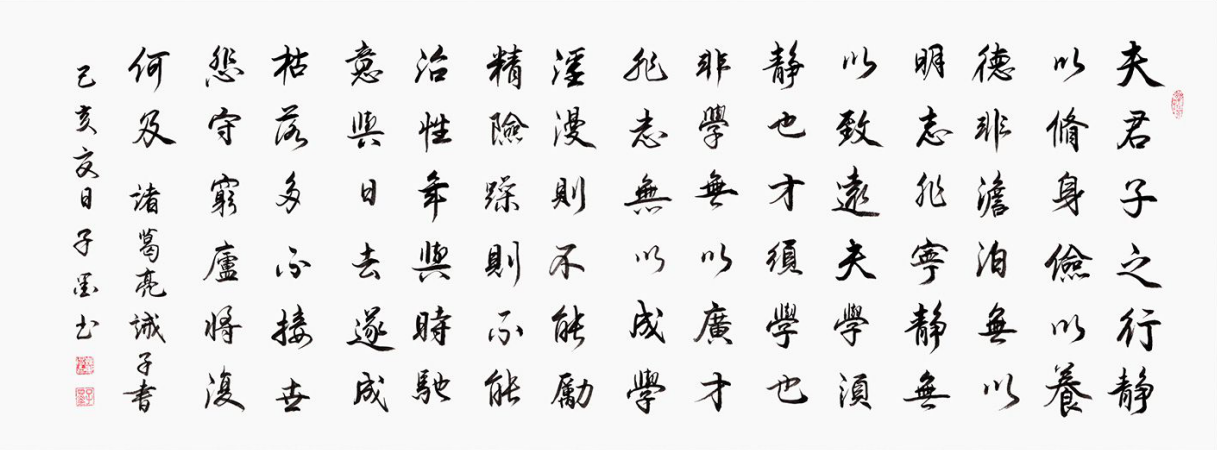 夫君子之行靜
以脩身儉以養
德非澹泊無以
明志非寧靜無
以致遠夫學須
靜也才須學也
非學無以廣才
非志無以成學
淫漫則不能勵
精險躁則不能
治性年與時馳
意與日去遂成
枯落多不接世
悲守窮廬將復
何及 諸葛亮誡子書
己亥夏日子墨书